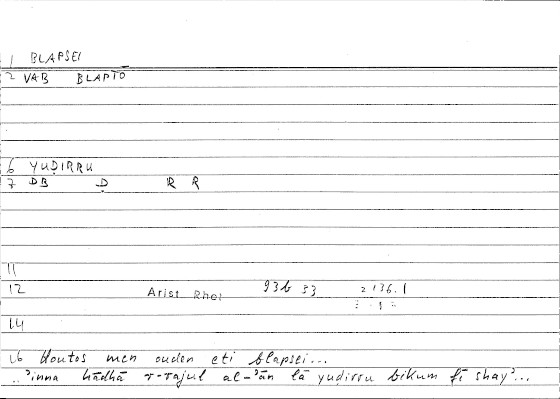 1 BLAPSEI
2 VAB BLAPTŌ
6 YUḌIRRU
7 DB Ḍ R R
11
12 Arist Rhet 93b 33 2136.1
14
16 Houtos men ouden eti blapsei...
..'inna hādhā r-rajul al-'ān lā yuḍirru bikum fī shay'...